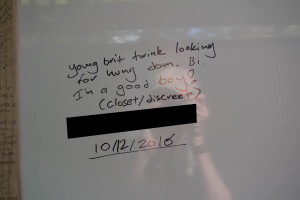 young brit twink looking
for hung dom. Bi
I'm a good boy?
(closet/discreet)
10/12/2016